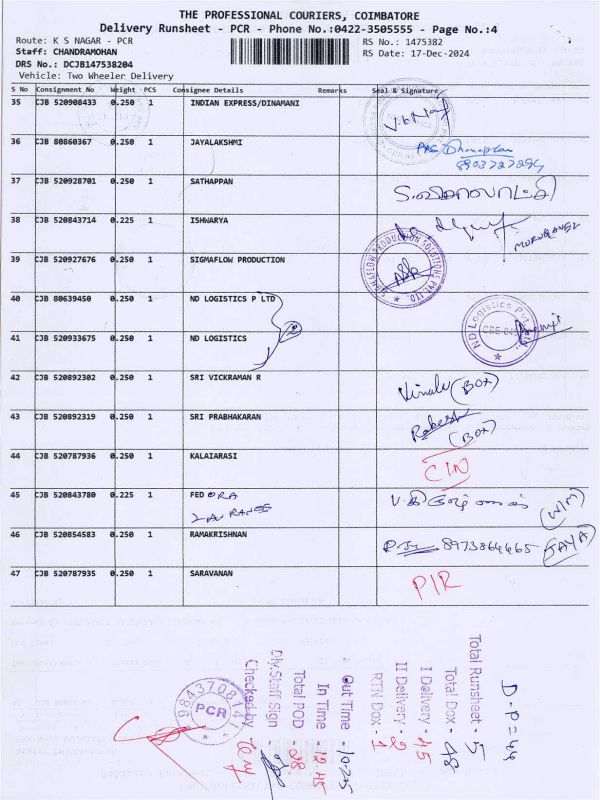 THE PROFESSIONAL COURIERS, COIMBATORE
Delivery Runsheet - PCR - Phone No.:0422-3505555 - Page No.:4
Route: K S NAGAR - PCR RS No.: 1475382
Staff: CHANDRAMOHAN RS Date: 17-Dec-2024
DRS No.: DCJB147538204
Vehicle: Two Wheeler Delivery
S No Consignment No Weight PCS Consignee Details Remarks Seal & Signature
35 CJB 520908433 0.250 1 INDIAN EXPRESS/DINAMANI
36 CJB 80860367 0.250 1 JAYALAKSHMI
8903727294
37 CJB 520928701 0.250 1 SATHAPPAN
38 CJB 520843714 0.225 1 ISHWARYA
MURUGAVEL
39 CJB 520927676 0.250 1 SIGMAFLOW PRODUCTION
SIGMAFLOW PRODUCTION SOLUTIONS PVT. LTD.
40 CJB 80639450 0.250 1 ND LOGISTICS P LTD
ND Logistics Pvt. Ltd.
41 CJB 520933675 0.250 1 ND LOGISTICS
42 CJB 520892302 0.250 1 SRI VICKRAMAN R
Vimala (BOX)
43 CJB 520892319 0.250 1 SRI PRABHAKARAN
Rakesh
(BOX)
44 CJB 520787936 0.250 1 KALAIARASI
CIN
45 CJB 520843780 0.225 1 FEDORA
(W/M)
46 CJB 520854583 0.250 1 RAMAKRISHNAN
8973864465 (JAYA)
47 CJB 520787935 0.250 1 SARAVANAN
PIR
D-P=44
Total Runsheet - 5
Total Dox - 48
I Delivery - 45
II Delivery - 2
RTN Dox - 1
Out Time - 10.25
In Time - 12.45
Total POD - 98
Dly.Staff Sign -
Checked by
9843708147
PCR